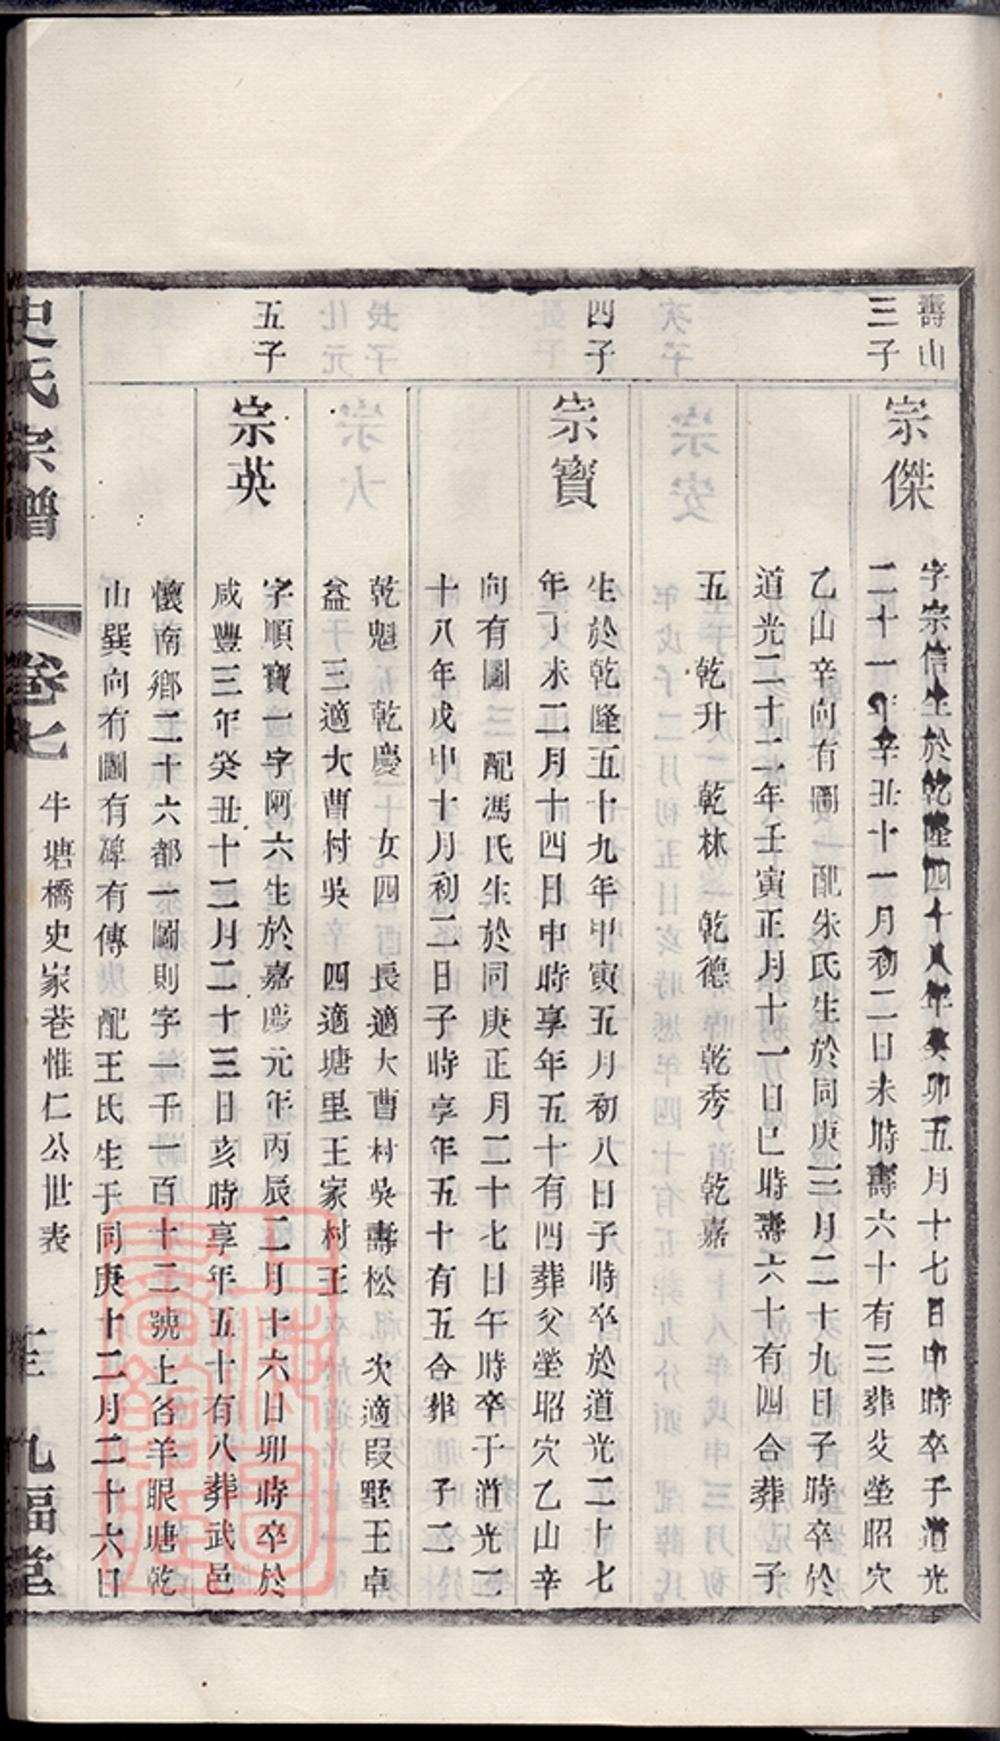 壽山
三子
宗傑
字宗信生於乾隆四十八年癸卯五月十七日申時卒于道光
二十一年辛丑十一月初二日未時壽六十有三葬父塋昭穴
乙山辛向有圖 配朱氏生於同庚三月二十九日子時卒於
道光二十二年壬寅正月十一日巳時壽六十有四合葬 子
五 乾升 乾林 乾德 乾秀 乾嘉
四子
宗寶
生於乾隆五十九年甲寅五月初八日子時卒於道光二十七
年丁未二月十四日申時享年五十有四葬父塋昭穴乙山辛
向有圖 配馮氏生於同庚正月二十七日午時卒于道光二
十八年戊申十月初二日子時享年五十有五合葬 子二
乾魁 乾慶 女四 長適大曹村吳壽松 次適段墅王卓
益 三適大曹村吳 四適塘里王家村王
五子
宗英
字順寶一字阿六生於嘉慶元年丙辰二月十六日卯時卒於
咸豐三年癸丑十二月二十三日亥時享年五十有八葬武邑
懷南鄉二十六都一圖則字一千一百十二號上名羊眼塘乾
山巽向有圖有碑有傳 配王氏生于同庚十二月二十六日
史氏宗譜
卷七
牛塘橋史家巷惟仁公世表
九福堂